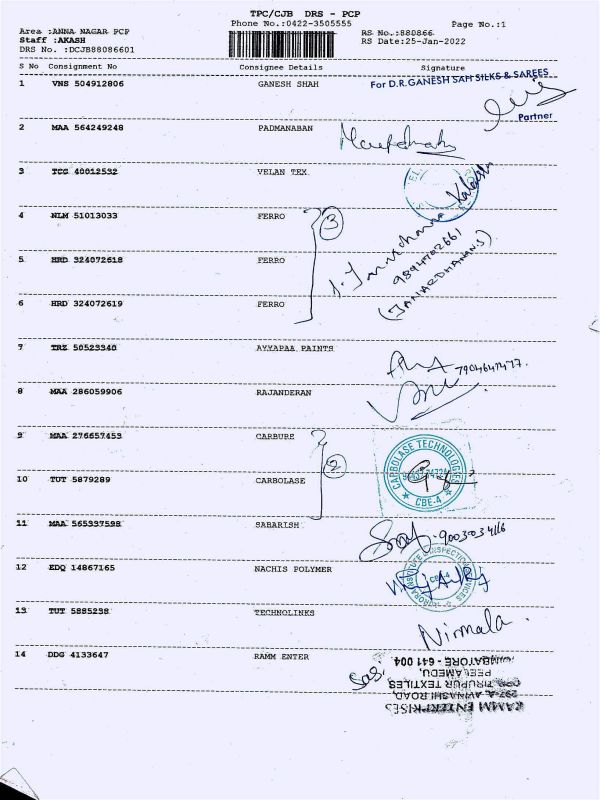 TPC/CJB DRS - PCP
Phone No.:0422-3505555
Page No.:1
Area :ANNA NAGAR PCP
RS No.:880866
Staff :AKASH
RS Date:25-Jan-2022
DRS No. :DCJB88086601
S No Consignment No Consignee Details Signature
1 VNS 504912806 GANESH SHAH
For D.R.GANESH SAH SILKS & SAREES
Partner
2 MAA 564249248 PADMANABAN
3 TCG 40012532 VELAN TEX.
4 NLM 51013033 FERRO
3
5 HRD 324072618 FERRO
9894702661
(JANARDHANAN.S)
6 HRD 324072619 FERRO
7 TRZ 50523340 AYYAPAA PAINTS
8 MAA 286059906 RAJANDERAN
9 MAA 276657453 CARBURE
2
CARBOLASE TECHNOLOGIES
CBE-4
10 TUT 5879289 CARBOLASE
11 MAA 565337598 SABARISH
12 EDQ 14867165 NACHIS POLYMER
13 TUT 5885238 TECHNOLINKS
Nirmala
14 DDG 4133647 RAMM ENTER
RAMM ENTERPRISES
297-A, AVINASHI ROAD,
TIRUPUR TEXTILES
PEELAMEDU,
COIMBATORE - 641 004